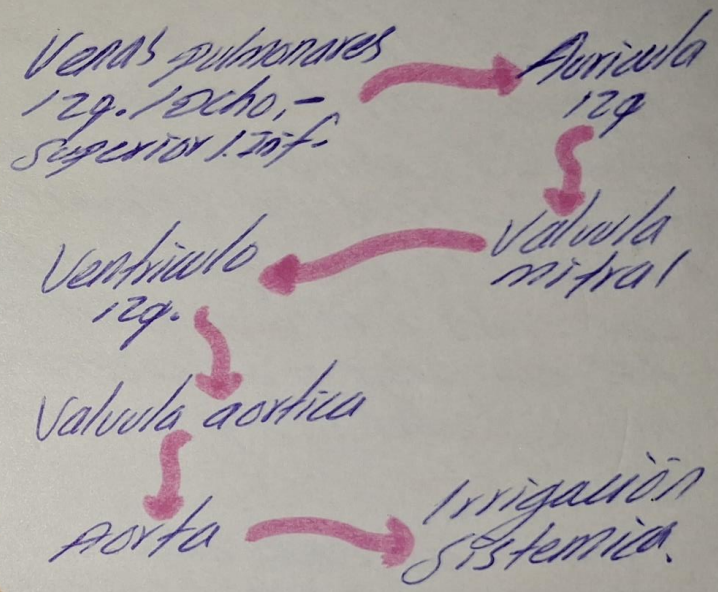 Venas pulmonares
Izq. / Dcho, -
Superior / Inf.
Auricula
Izq
Valvula
mitral
Ventriculo
Izq.
Valvula aortica
Aorta
Irrigación
Sistemica.